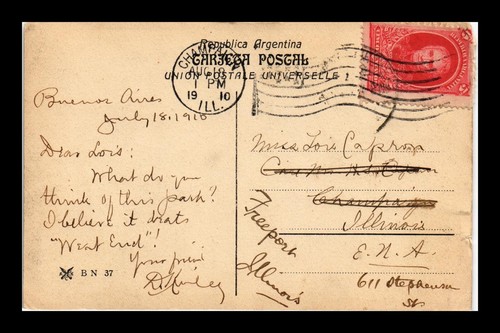 Republica Argentina
TARJETA POSTAL
UNION POSTALE UNIVERSELLE
CHAMPAIGN
AUG 19
1 PM
1910
ILL.
1
Buenos Aires
July 18. 1910
Dear Lois:
What do you
think of this park?
I believe it beats
"West End"!
Your friend
D. Kinley
BN 37
Miss Lois Capron
Champaign
Illinois
E. N. A.
Freeport
Illinois
611 Stephenson
St